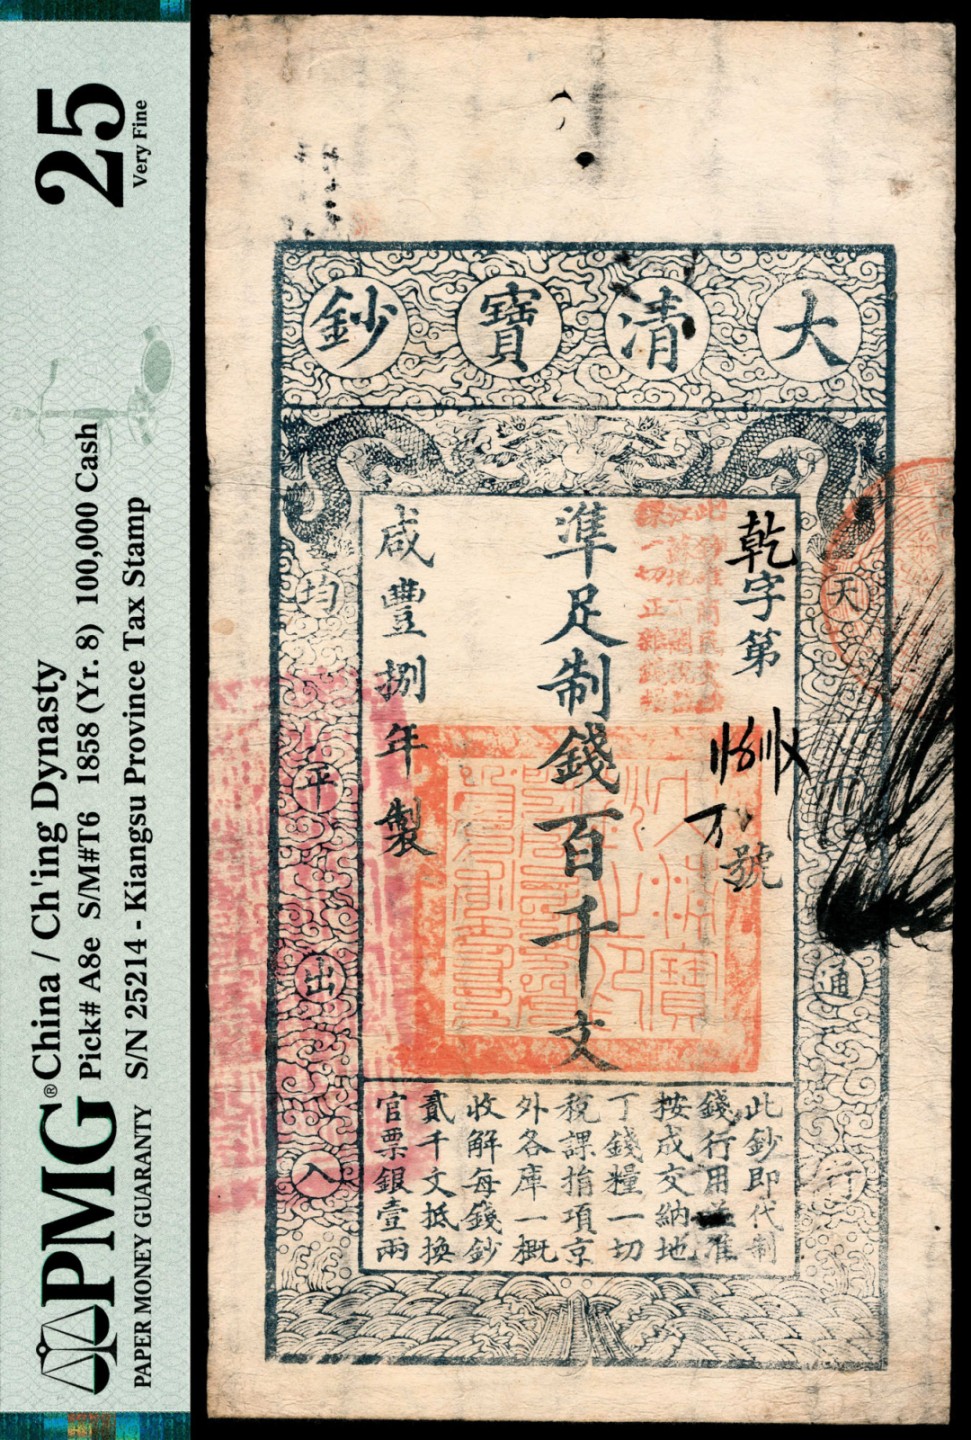 PMG® PAPER MONEY GUARANTY
China / Ch'ing Dynasty
Pick# A8e S/M#T6 1858 (Yr. 8) 100,000 Cash
S/N 25214 - Kiangsu Province Tax Stamp
25
Very Fine
大清寶鈔
天
通行
均平出入
乾字第
號
準足制錢百千文
咸豐捌年製
此鈔即代制
錢行用並准
按成交納地
丁錢糧一切
稅課捐項京
外各庫一概
收解每錢鈔
貳千文抵換
官票銀壹兩